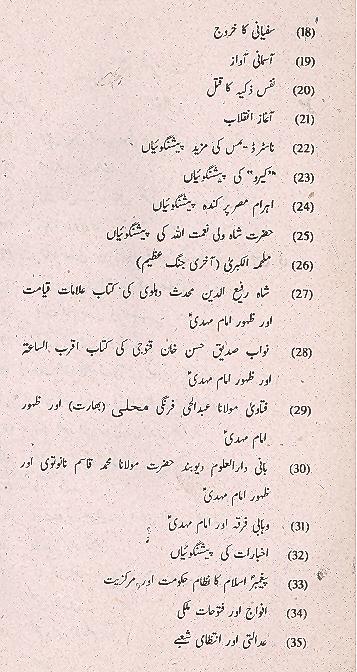 (18) سفیانی کا خروج
(19) آسمانی آواز
(20) نفس ذکیہ کا قتل
(21) آغاز انقلاب
(22) ناسٹرڈیمس کی مزید پیشنگوئیاں
(23) "کیرو" کی پیشنگوئیاں
(24) اہرام مصر پر کندہ پیشنگوئیاں
(25) حضرت شاہ ولی نعمت اللہ کی پیشنگوئیاں
(26) ملحمۃ الکبریٰ (آخری جنگ عظیم)
(27) شاہ رفیع الدین محدث دہلوی کی کتاب علامات قیامت
اور ظہور امام مہدیؑ
(28) نواب صدیق حسن خان قنوجی کی کتاب اقرب الساعۃ
اور ظہور امام مہدیؑ
(29) فتاویٰ مولانا عبدالحئی فرنگی محلی (بھارت) اور ظہور
امام مہدیؑ
(30) بانی دارالعلوم دیوبند حضرت مولانا محمد قاسم نانوتوی اور
ظہور امام مہدیؑ
(31) وہابی فرقہ اور امام مہدیؑ
(32) اخبارات کی پیشنگوئیاں
(33) پیغمبر اسلام کا نظام حکومت اور مرکزیت
(34) افواج اور فتوحات ملکی
(35) عدالتی اور انتظامی شعبے